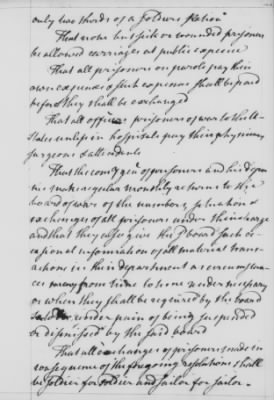 only two thirds of a Soldiers Ration
That none but sick or wounded prisoners
be allowed carriages at public expence
That all prisoners on parole pay their
own expences & such expences shall be paid
before they shall be exchanged
That all officers prisoners of war to these
States unless in hospitals pay their physicians
surgeons & attendants
That the com<sup>y</sup> gen<sup>l</sup> of prisoners and his deputies
make regular monthly returns to the
board of war of the numbers, situation &
exchanges of all prisoners under their charge
and that they also give the s<sup>d</sup> board such oc-
casional information of all material trans-
actions in their department as circumstan-
ces may from time to time render necessary
or when they shall be required by the board
under pain of being suspended
or dismissed by the said board
That all exchanges of prisoners made in
consequence of the foregoing resolutions shall
be Soldier for Soldier and Sailor for Sailor.